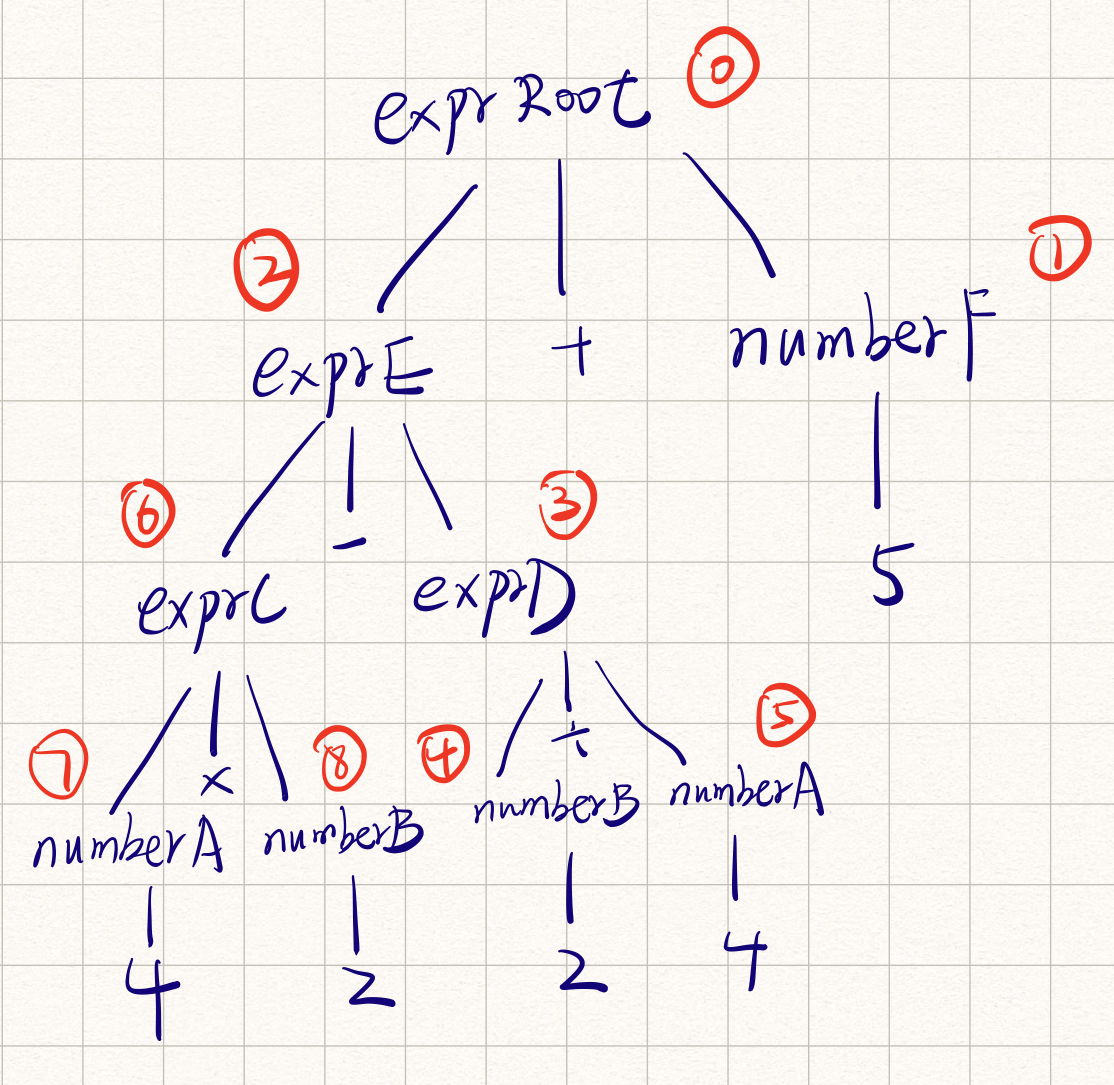 exprRoot ⓪
② ①
exprE + numberF
⑥ - ③ 5
exprC exprD
⑦ × ⑧ ④ ÷ ⑤
numberA numberB numberB numberA
4 2 2 4